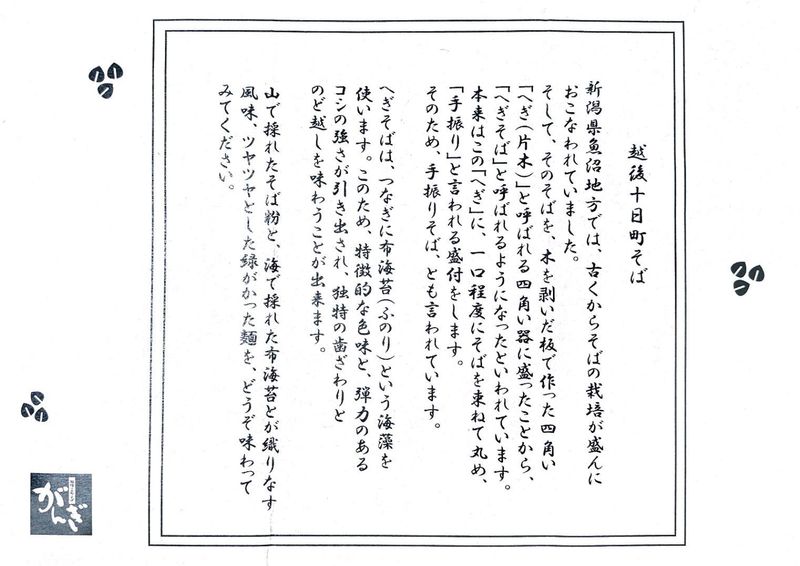 越後十日町そば
新潟県魚沼地方では、古くからそばの栽培が盛んに
おこなわれていました。
そして、そのそばを、木を剥いだ板で作った四角い
「へぎ(片木)」と呼ばれる四角い器に盛ったことから、
「へぎそば」と呼ばれるようになったといわれています。
本来はこの「へぎ」に、一口程度にそばを束ねて丸め、
「手振り」と言われる盛付をします。
そのため、手振りそば、とも言われています。
へぎそばは、つなぎに布海苔(ふのり)という海藻を
使います。このため、特徴的な色味と、弾力のある
コシの強さが引き出され、独特の歯ざわりと
のど越しを味わうことが出来ます。
山で採れたそば粉と、海で採れた布海苔とが織りなす
風味、ツヤツヤとした緑がかった麺を、どうぞ味わって
みてください。
がんぎ